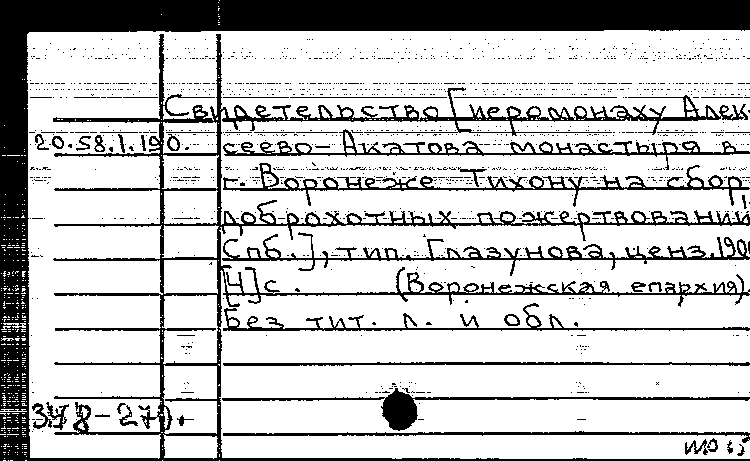 Свидетельство [иеромонаху Алек-
20.58.1.190. сеево-Акатова монастыря в
г. Воронеже Тихону на сбор
доброхотных пожертвований
Спб.], тип. Глазунова, ценз. 1900
[4]с. (Воронежская епархия).
Без тит. л. и обл.